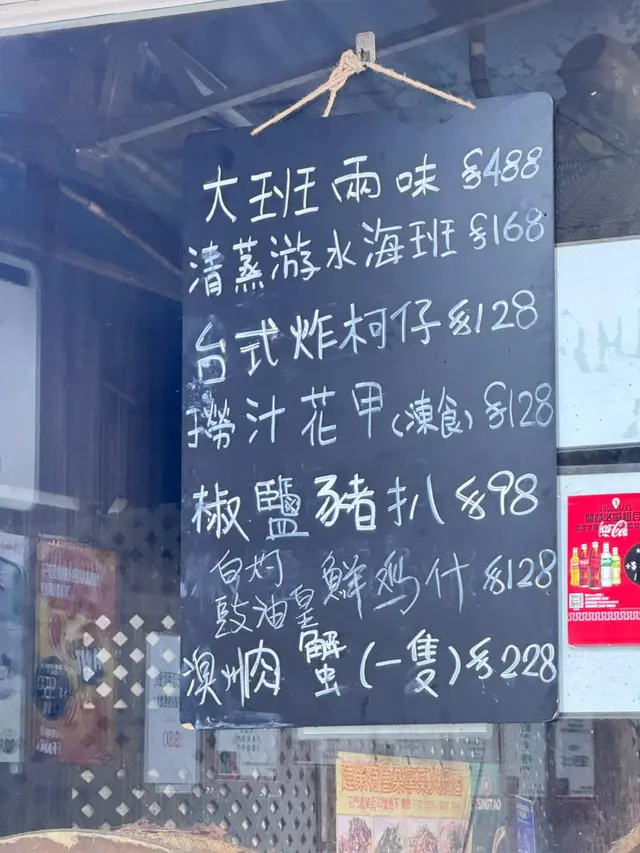 大班兩味 $488
清蒸游水海班 $168
台式炸柯仔 $128
撈汁花甲(凍食) $128
椒鹽豬扒 $98
白灼
豉油皇 鮮鸡什 $128
澳州肉蟹(一隻) $228
Coca-Cola
TSINGTAO